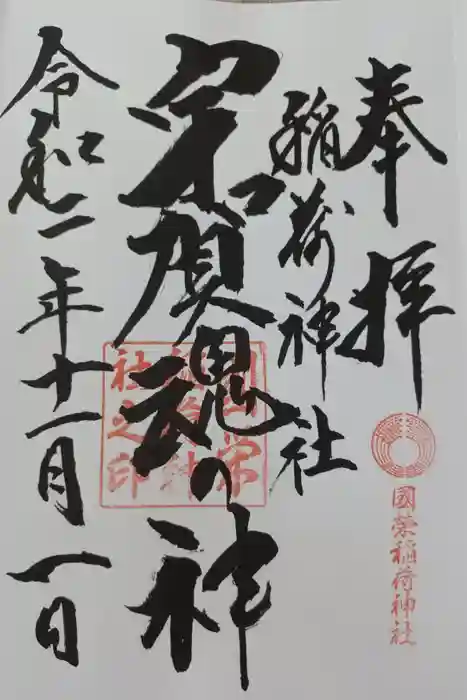 奉拝
國榮稲荷神社
稲荷神社
宇賀魂の神
國榮稲荷神社之印
令和二年十一月一日